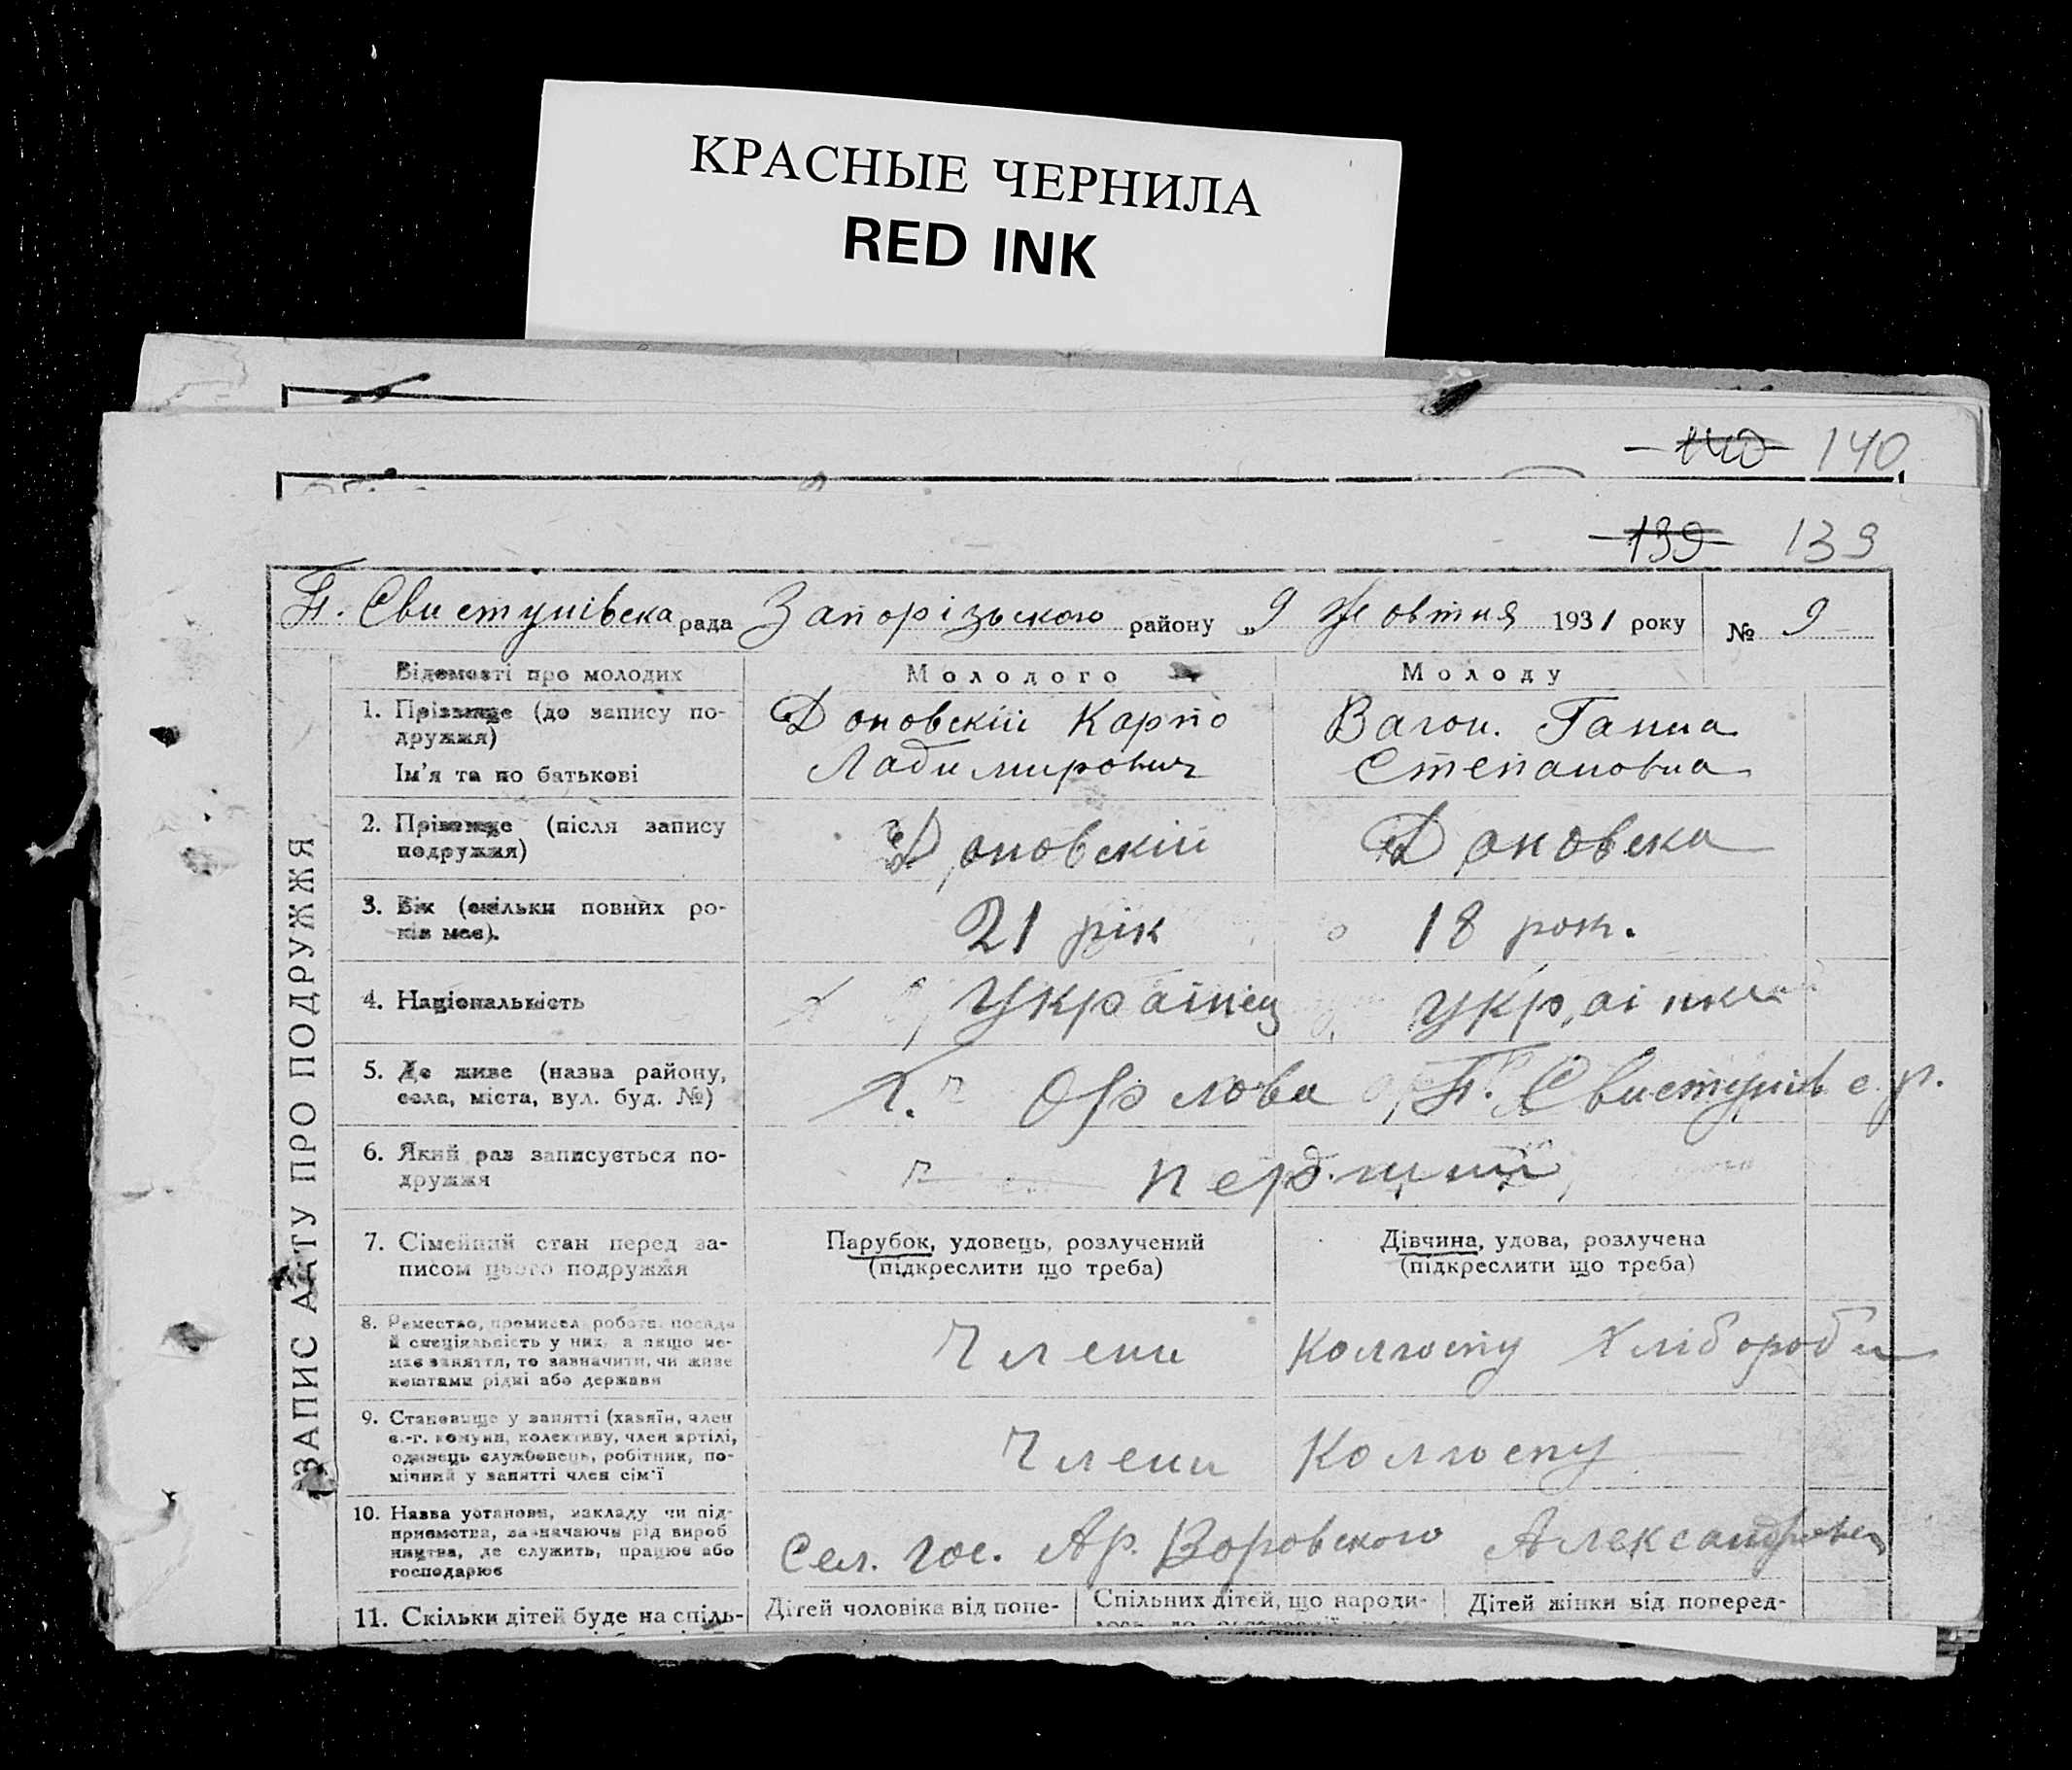 КРАСНЫЕ ЧЕРНИЛА
RED INK
140 140
139 139
П. Свистунівська рада Запорізького району „9 Жовтня 1931 року № 9
ЗАПИС АКТУ ПРО ПОДРУЖЖЯ
Відомості про молодих Молодого Молоду
1. Прізвище (до запису по-
дружжя)
Ім'я та по батькові
Доновскій Карпо
Ладимирович
Вагон. Ганна
Степановна
2. Прізвище (після запису
подружжя)
Доновскій Доновска
3. Вік (скільки повних ро-
ків має).
21 рік 18 рок.
4. Національність Українец українка
5. Де живе (назва району,
села, міста, вул. буд. №)
Х. Орлова П. Свистунів с. р.
6. Який раз записується по-
дружжя
перший
7. Сімейний стан перед за-
писом цього подружжя
Парубок, удовець, розлучений
(підкреслити що треба)
Дівчина, удова, розлучена
(підкреслити що треба)
8. Ремество, промисел, робота, посада
й спеціяльність у них, а якщо не-
має заняття, то зазначити, чи живе
коштами рідні або держави
Члени колгоспу Хлібороби
9. Становище у занятті (хазяїн, член
с.-г. комуни, колективу, член артілі,
одинець службовець, робітник, по-
мічний у занятті член сім'ї
Члени Колгоспу
10. Назва установи, закладу чи під-
приємства, зазначаючи рід вироб
ництва, де служить, працює або
господарює
Сел. гос. Ар. Воровского
11. Скільки дітей буде на спіль-
Дітей чоловіка від попе-
Спільних дітей, що народи-
Дітей жінки від поперед-